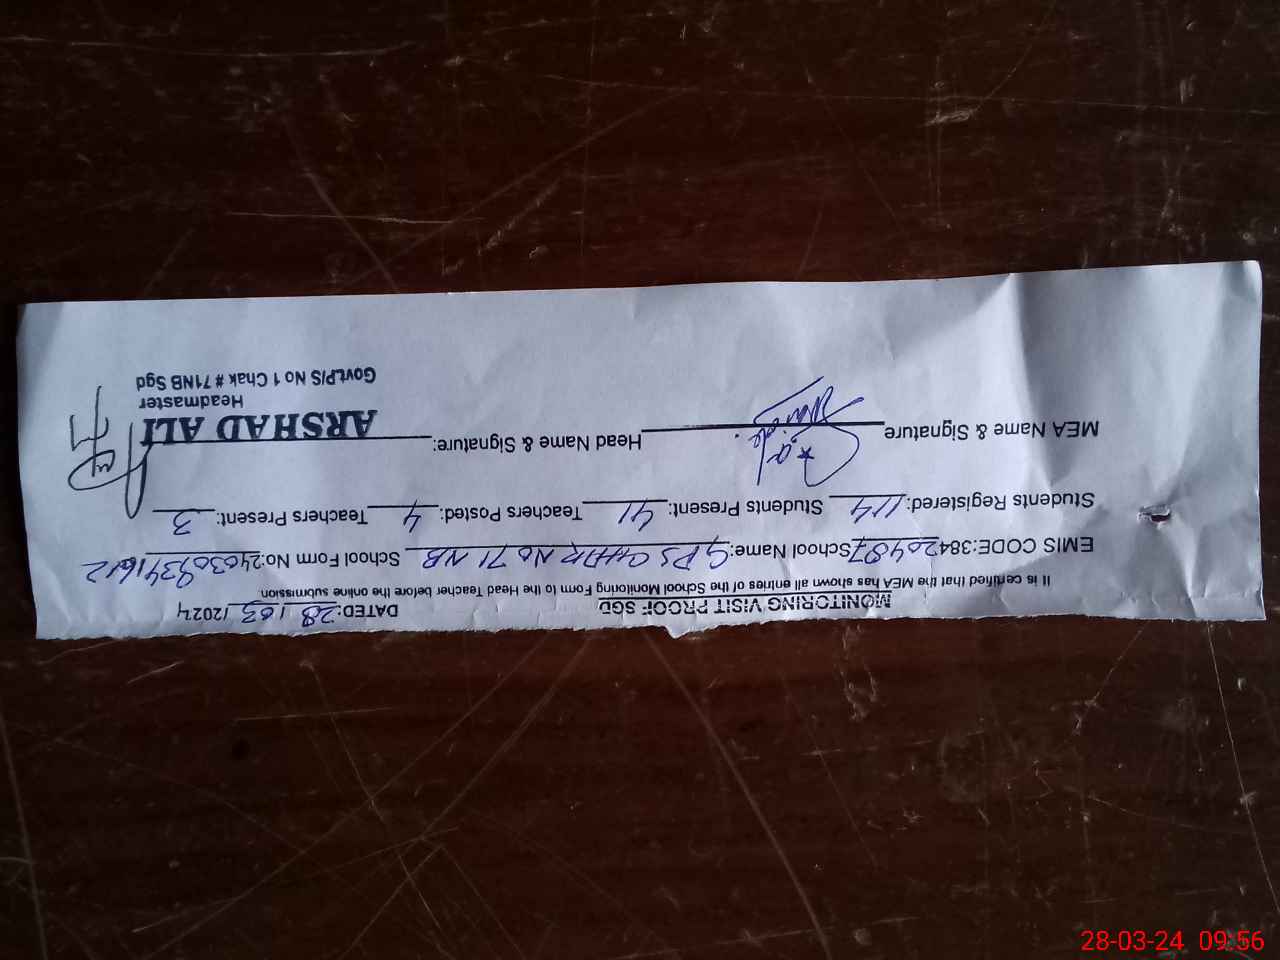 MONITORING VISIT PROOF SGD DATED: 28/03/2024
It is certified that the MEA has shown all entries of the School Monitoring Form to the Head Teacher before the online submission.
EMIS CODE:384 20487 School Name: GPS CHAK No 71 NB School Form No:240309341612
Students Registered: 114 Students Present: 41 Teachers Posted: 4 Teachers Present: 3
MEA Name & Signature Head Name & Signature: ARSHAD ALI
Headmaster
Govt.P/S No 1 Chak # 71NB Sgd
28-03-24 09:56